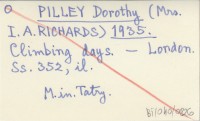 PILLEY Dorothy (Mrs.
I.A.RICHARDS) 1935.
Climbing days. - London.
Ss. 352, il.
M.in. Tatry.